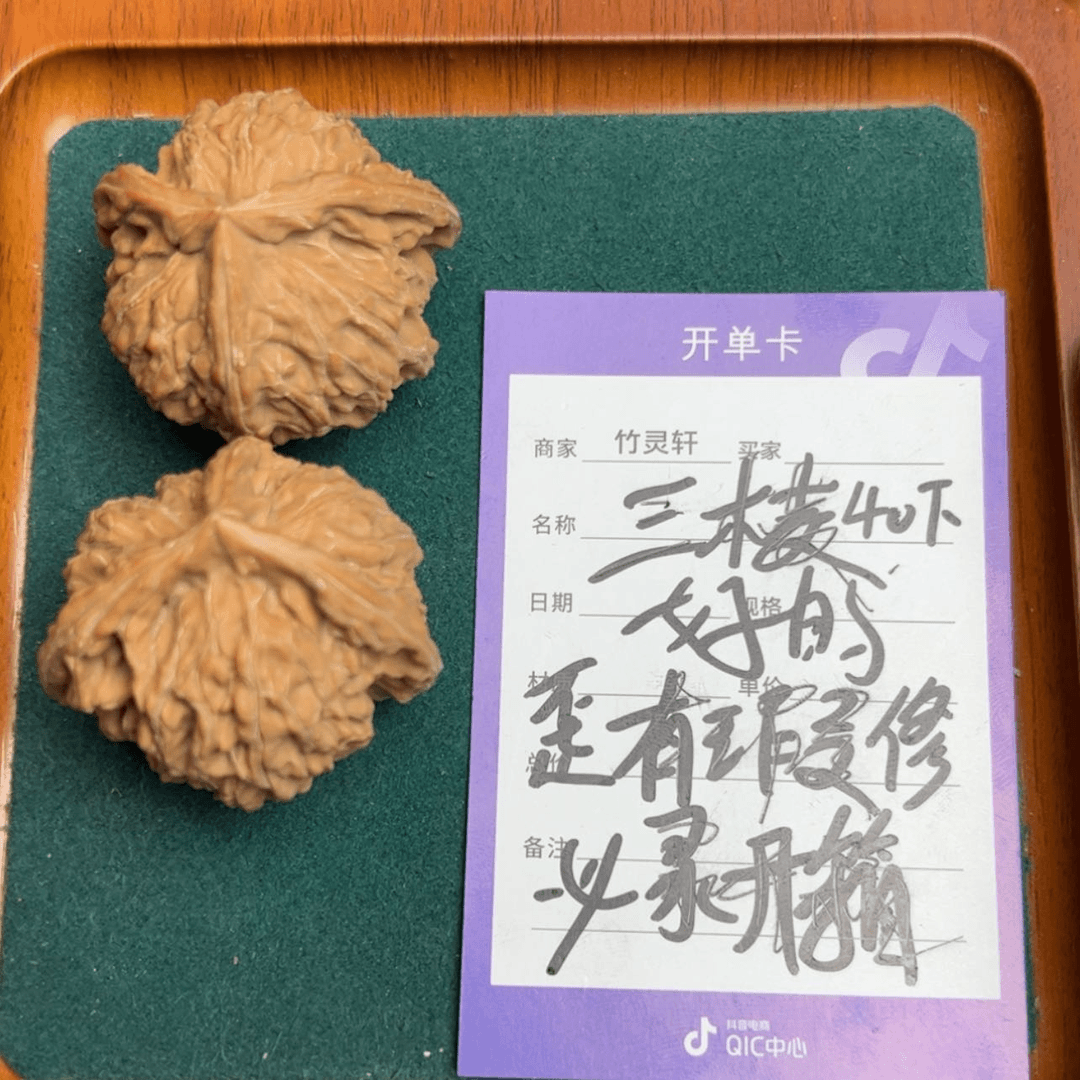 开单卡
商家 竹灵轩 买家
名称 三棱40下
日期 规格
好的
单价
歪有瑕修
备注
必录开箱
抖音电商
QIC中心